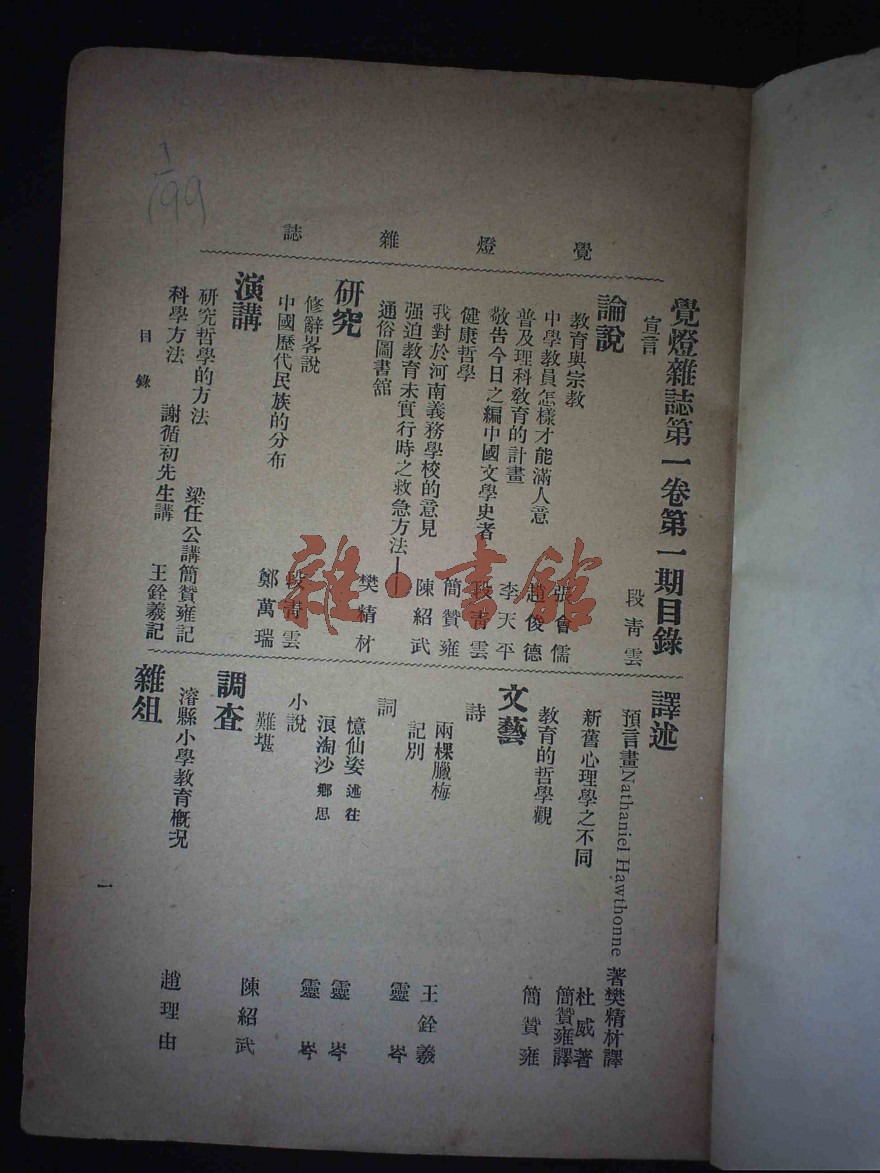 覺燈雜誌
覺燈雜誌第一卷第一期目錄
宣言 段青雲
論說
教育與宗教 張會儒
中學教員怎樣才能滿人意 趙俊德
普及理科教育的計畫 李天平
敬告今日之編中國文學史者 段青雲
健康哲學 簡贊雍
我對於河南義務學校的意見 陳紹武
强迫教育未實行時之救急方法——
通俗圖書舘 樊精材
研究
修辭畧說 段青雲
中國歷代民族的分布 鄭萬瑞
演講
研究哲學的方法 梁任公講簡贊雍記
科學方法 謝循初先生講 王銓羲記
目錄
譯述
預言畫Nathaniel Hawthonne 著樊精材譯
新舊心理學之不同 杜威著
簡贊雍譯
教育的哲學觀 簡贊雍
文藝
詩
兩棵臘梅 王銓羲
記別 靈岑
詞
憶仙姿 述往
浪淘沙 鄉思 靈岑
小說
難堪 靈岑
調查
濬縣小學教育概況 陳紹武
雜俎
趙理由
一
1
199
雜·書舘